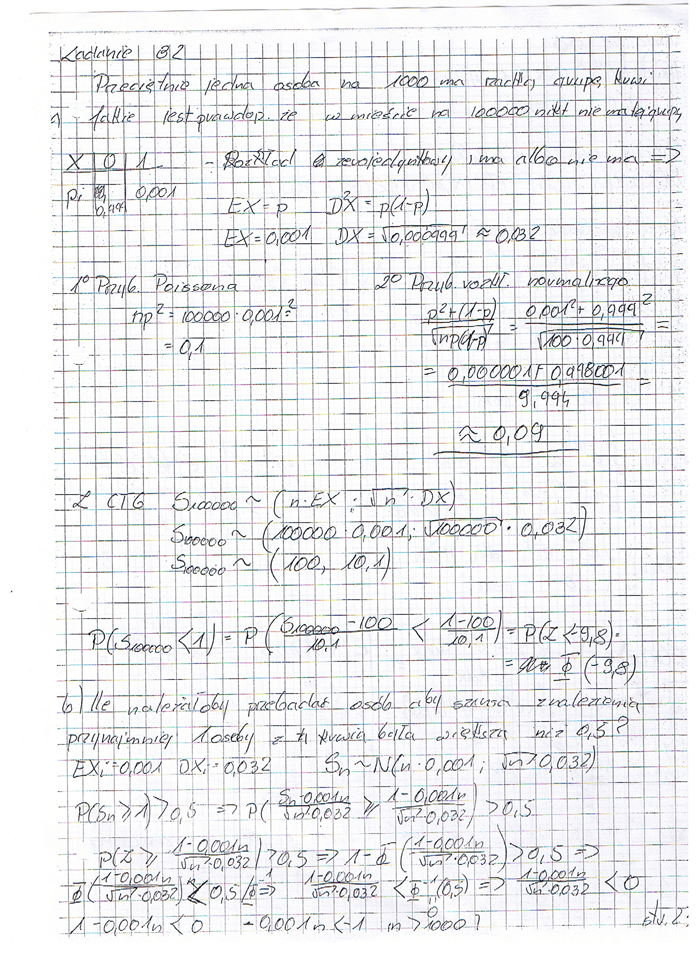 Zadanie B2
Przeciętnie jedna osoba na 1000 ma rzadką grupę krwi
Jakie jest prawdop. że w mieście na 100000 nikt nie ma tej grupy
X 0 1 - Rozkład zerojedynkowy, ma albo nie ma =>
pi 0,999 0,001
EX = p D²X = p(1-p)
EX = 0,001 DX = √0,000999 ≈ 0,032
1° Przyb. Poissona 2° Przyb. rozkł. normalnego
np² = 100000 · 0,001² =
= 0,1
p²+(1-p) / √np(1-p) = 0,001² + 0,999² / √100 · 0,999 =
= 0,000001 + 0,998001 / 9,994 =
≈ 0,09
Z CTG S100000 ~ (n·EX ; √n · DX)
S100000 ~ (100000 · 0,001; √100000 · 0,032)
S100000 ~ (100, 10,1)
P(S100000 < 1) = P(S100000 - 100 / 10,1 < 1-100 / 10,1) = P(Z < -9,8) =
= Φ(-9,8)
b) Ile należałoby przebadać osób aby szansa znalezienia
przynajmniej 1 osoby z tą krwią była większa niż 0,5?
EXi = 0,001 DXi = 0,032 Sn ~ N(n · 0,001; √n · 0,032)
P(Sn ≥ 1) > 0,5 => P(Sn - 0,001n / √n · 0,032 ≥ 1 - 0,001n / √n · 0,032) > 0,5
P(Z ≥ 1-0,001n / √n · 0,032) > 0,5 => 1 - Φ(1-0,001n / √n · 0,032) > 0,5 =>
Φ(1-0,001n / √n · 0,032) < 0,5 /Φ⁻¹ => 1-0,001n / √n · 0,032 < Φ⁻¹(0,5) => 1-0,001n / √n · 0,032 < 0
0
1 - 0,001n < 0 -0,001n < -1 n > 1000? str. 2: